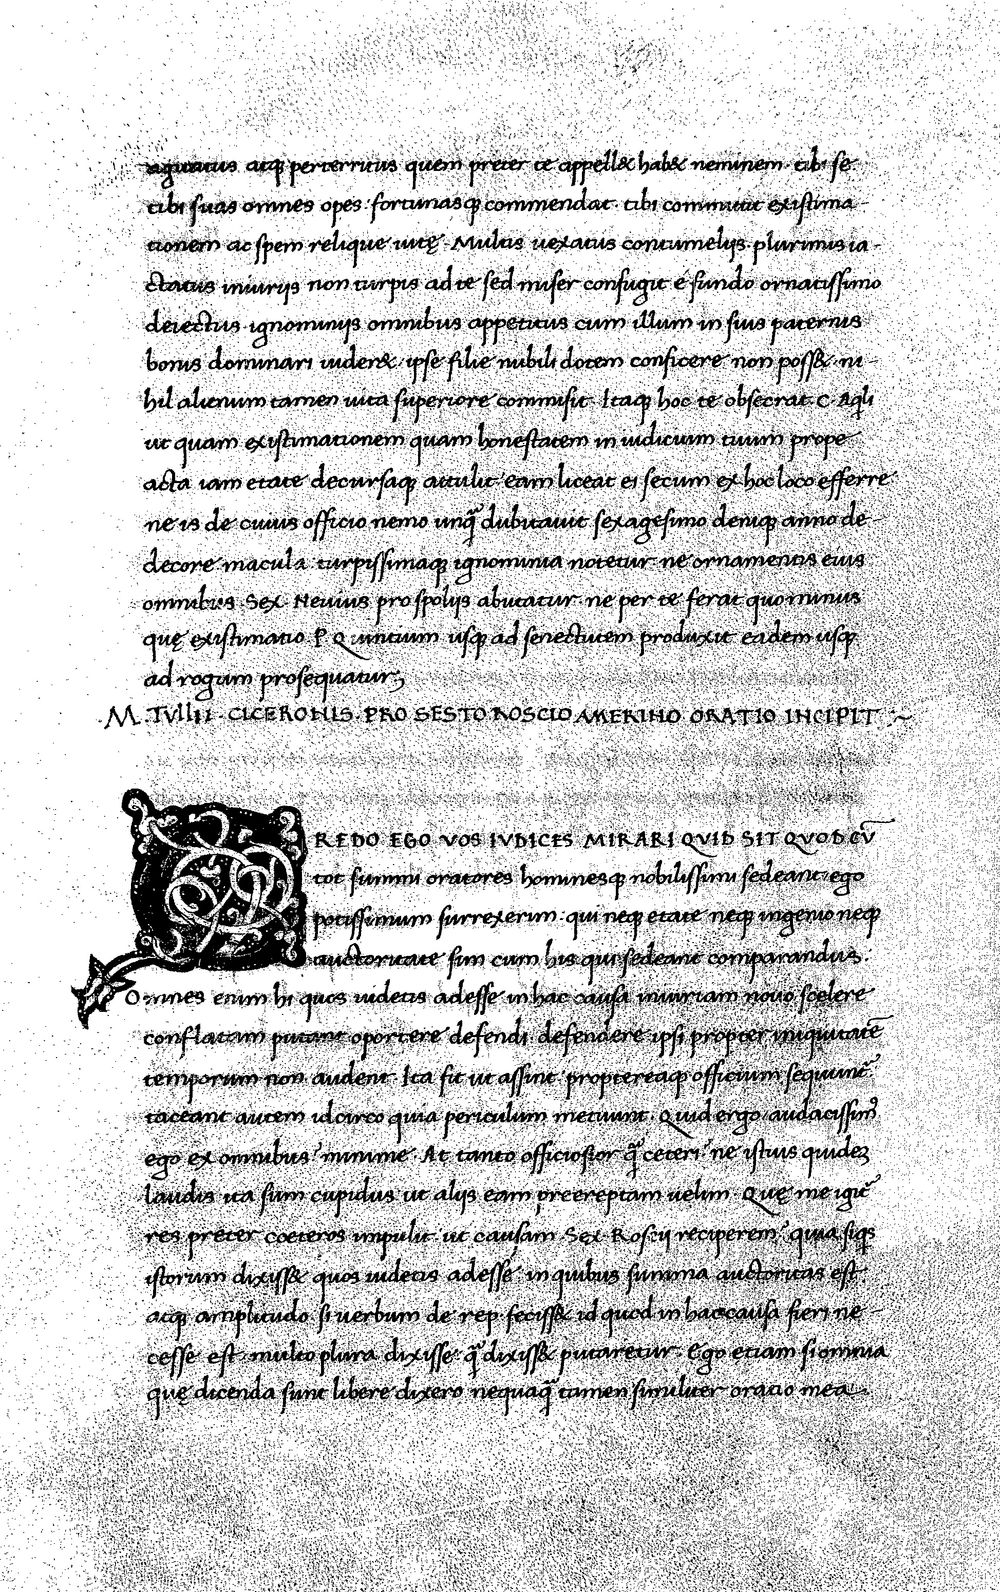 agitatus atq perterritus quem preter te appell& hab& neminem. tibi se
tibi suas omnes opes fortunasq commendat. tibi committit existima-
tionem ac spem relique uitę. Multis uexatus contumelijs. plurimis ia-
ctatus iniurijs non turpis ad te sed miser confugit é fundo ornatissimo
deiectus ignominijs omnibus appetitus cum illum in suis paternis
bonis dominari uider&. ipse filie nubili dotem conficere non poss&. ni-
hil alienum tamen uita superiore commisit. Itaq hoc te obsecrat C. Aqli
ut quam existimationem quam honestatem in iudicium tuum prope
acta iam etate decursaq attulit eam liceat ei secum ex hoc loco efferre
ne is de cuius officio nemo unq̃ dubitauit sexagesimo deniq anno de-
decore macula turpissimaq ignominia notetur ne ornamentis eius
omnibus Sex. Neuius pro spolijs abutatur ne per te ferat quominus
quę existimatio P. Q uintium usq ad senectutem produxit eadem usq
ad rogum prosequatur;
M. TVLLII. CICERONIS. PRO SESTO ROSCIO AMERINO ORATIO INCIPIT :~
CREDO EGO VOS IVDICES MIRARI QVID SIT QVOD CV̄
tot summi oratores hominesq nobilissimi sedeant ego
potissimum surrexerim. qui neq etate neq ingenio neq
auctoritate sim cum his qui sedeant comparandus.
Omnes enim hi quos uidetis adesse in hac causa iniuriam nouo scelere
conflatam putant oportere defendi defendere ipsi propter iniquitatē
temporum non audent. Ita fit ut assint propterea q officium sequunt̃
taceant autem idcirco quia periculum metuunt. Quid ergo audacissim9
ego ex omnibus? minime. At tanto officiosior q̃ ceteri? ne istius quidez
laudis ita sum cupidus ut alijs eam preereptam uelim. Quę me igit̃
res preter coeteros impulit ut causam Sex. Roscij reciperem? quia siqs
istorum dixiss& quos uidetis adesse in quibus summa auctoritas est
atq amplitudo si uerbum de rep. feciss& id quod in hac causa fieri ne-
cesse est. multo plura dixisse q̃ dixiss& putaretur. Ego etiam si omnia
quę dicenda sunt libere dixero nequaq̃ tamen similiter oratio mea